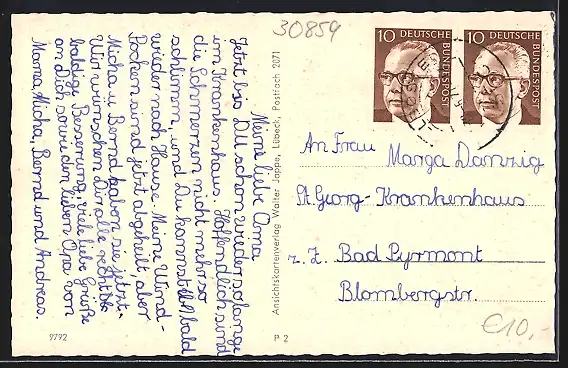 30859
Meine liebe Oma
Jetzt bist Du schon wieder so lange
im Krankenhaus. Hoffendlich sind
die Schmerzen nicht mehr so
schlimm, und Du kommst bald
wieder nach Hause. Meine Wind-
Pocken sind jetzt abgeheilt, aber
Micha u Bernd haben sie jetzt.
Wir wünschen Dir alle recht
baldige Besserung, viele liebe Grüße
an Dich sowie den lieben Opa von
Mama, Micha, Bernd und Andreas.
9792
Ansichtskartenverlag Walter Jappe, Lübeck, Postfach 2071
P 2
10 DEUTSCHE BUNDESPOST
10 DEUTSCHE BUNDESPOST
An Frau Marga Danzig
St. Georg-Krankenhaus
z. Z. Bad Pyrmont
Blombergstr.
€10,-